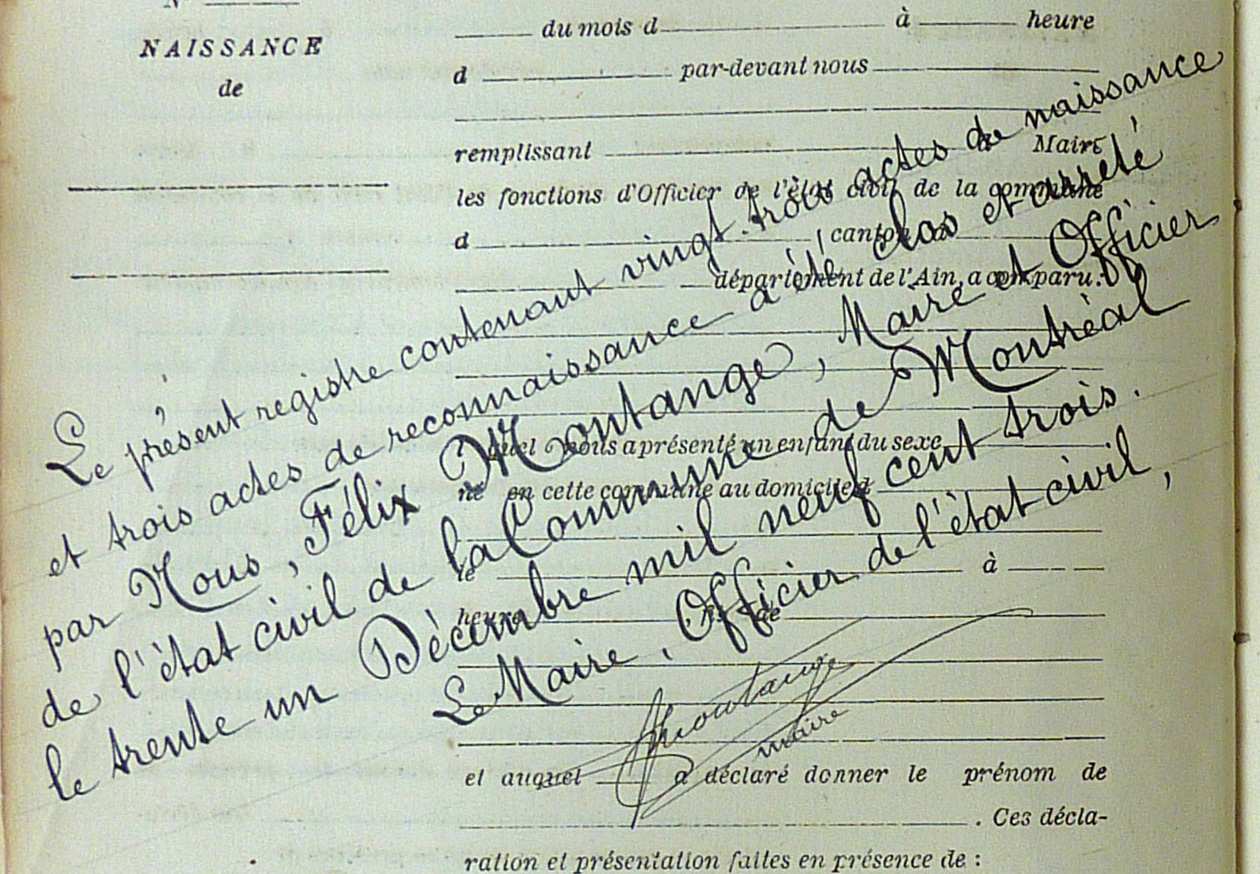 N°
NAISSANCE
de
du mois d à heure
d par-devant nous
remplissant Maire
les fonctions d'Officier de l'état civil de la commune
d canton
département de l'Ain, a comparu :
l quel nous a présenté un enfant du sexe
né en cette commune au domicile d
le à
heure de
et auquel a déclaré donner le prénom de
. Ces décla-
ration et présentation faites en présence de :
Le présent registre contenant vingt-trois actes de naissance
et trois actes de reconnaissance a été clos et arrêté
par Nous, Félix Montange, Maire et Officier
de l'état civil de la Commune de Montréal
le trente un Décembre mil neuf cent trois.
Le Maire, Officier de l'état civil,
Montange
maire